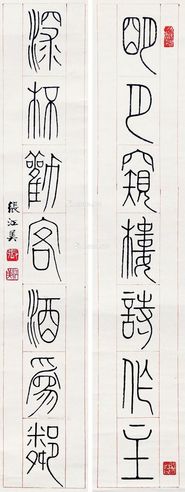 明月窺樓詩作主
深杯勸客酒為鄰
張江美